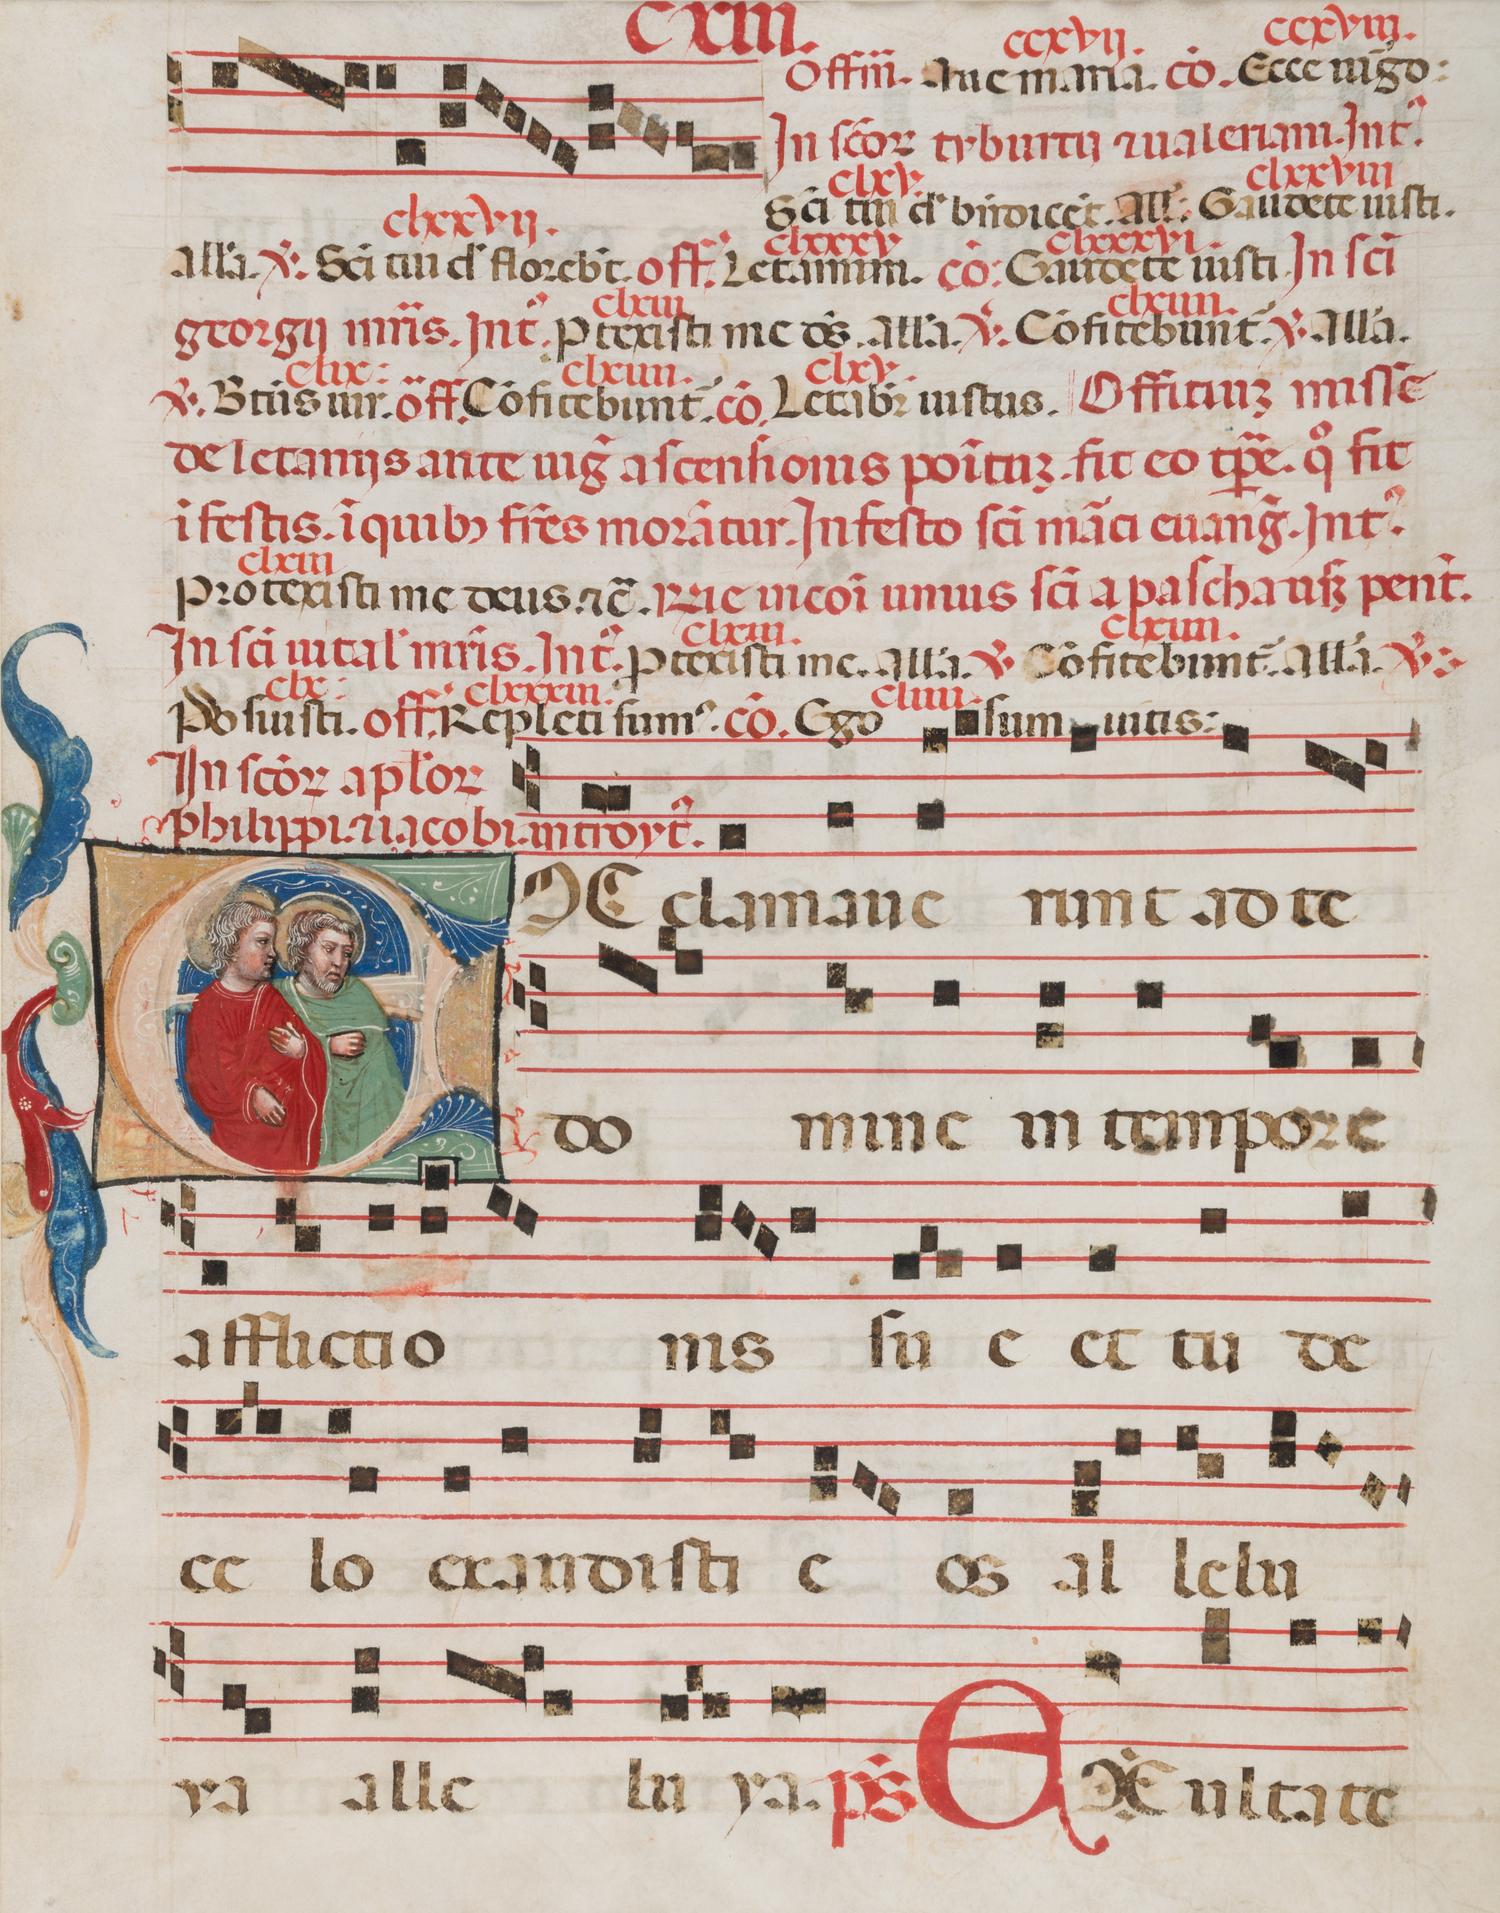 CXIII.
ccxvii. ccxviii.
Offm̄. Aue maria. cō. Ecce uiḡo:
In sc̄or tyburtij ⁊ ualeriani. Int̄.
clxv. clxxviii
Sc̄i tui d̄. bn̄dicēt. All̄. Gaudete iusti.
clxxvii. clxxxv clxxxvi.
all̄a. ℣. Sc̄i tui d̄ florebt̄. off̄. Letamini. cō: Gaudete iusti. In sc̄i
clxiii clxiiii.
georgij mr̄is. Int̄. Ptexisti me ds̄. all̄a. ℣. Cōfitebunt̄. ℣. All̄a.
clix: clxiiii. clxv.
℣. Bt̄us uir. off̄. Cōfitebunt̄. cō. Letabr̄ iustus. Officiuꝫ misse
de letanijs ante uiḡ ascensionis poītuꝫ. fit eo tp̄e. qͦ fit
ī festis. ī quibꝫ fr̄es morātur. In festo sc̄i mār̄ci euanḡ. Int̄.
clxiii
Protexisti me deus. ⁊c̄. R̄e in cōi unius sc̄i a pascha usqꝫ pent̄.
clxiii. clxiiii.
In sc̄i uital' mr̄is. Int̄. Ptexisti me. All̄a. ℣. Cōfitebunt̄. All̄a. ℣:
clx: clxxxiii. cliiii.
Posuisti. off̄. Repleti sumꝰ. cō. Ego sum uitis:
In sc̄or ap̄lor
philippi ⁊ iacobi. introyt̄.
EX clamaue runt ad te
do mine in tempore
afflictio nis su e et tu de
ce lo exaudisti e os al lelu
ya alle lu ya. ps̄ EXultate